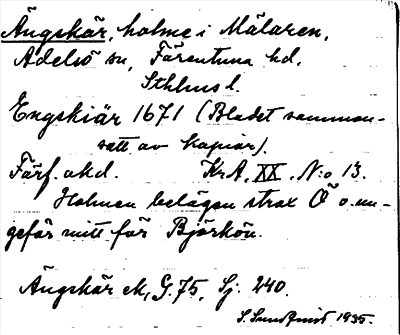 Ängskär, holme i Mälaren,
Adelsö sn, Färentuna hd.
Sthlms l.
Engskiär 1671 (Bladet samman-
satt av kopior).
Förf. okd. KrA, XX. N:o 13.
Holmen belägen strax Ö o. un-
gefär mitt för Björkön.
Ängskär ek, G. 75, Sj. 240.
S. Sundquist 1935.